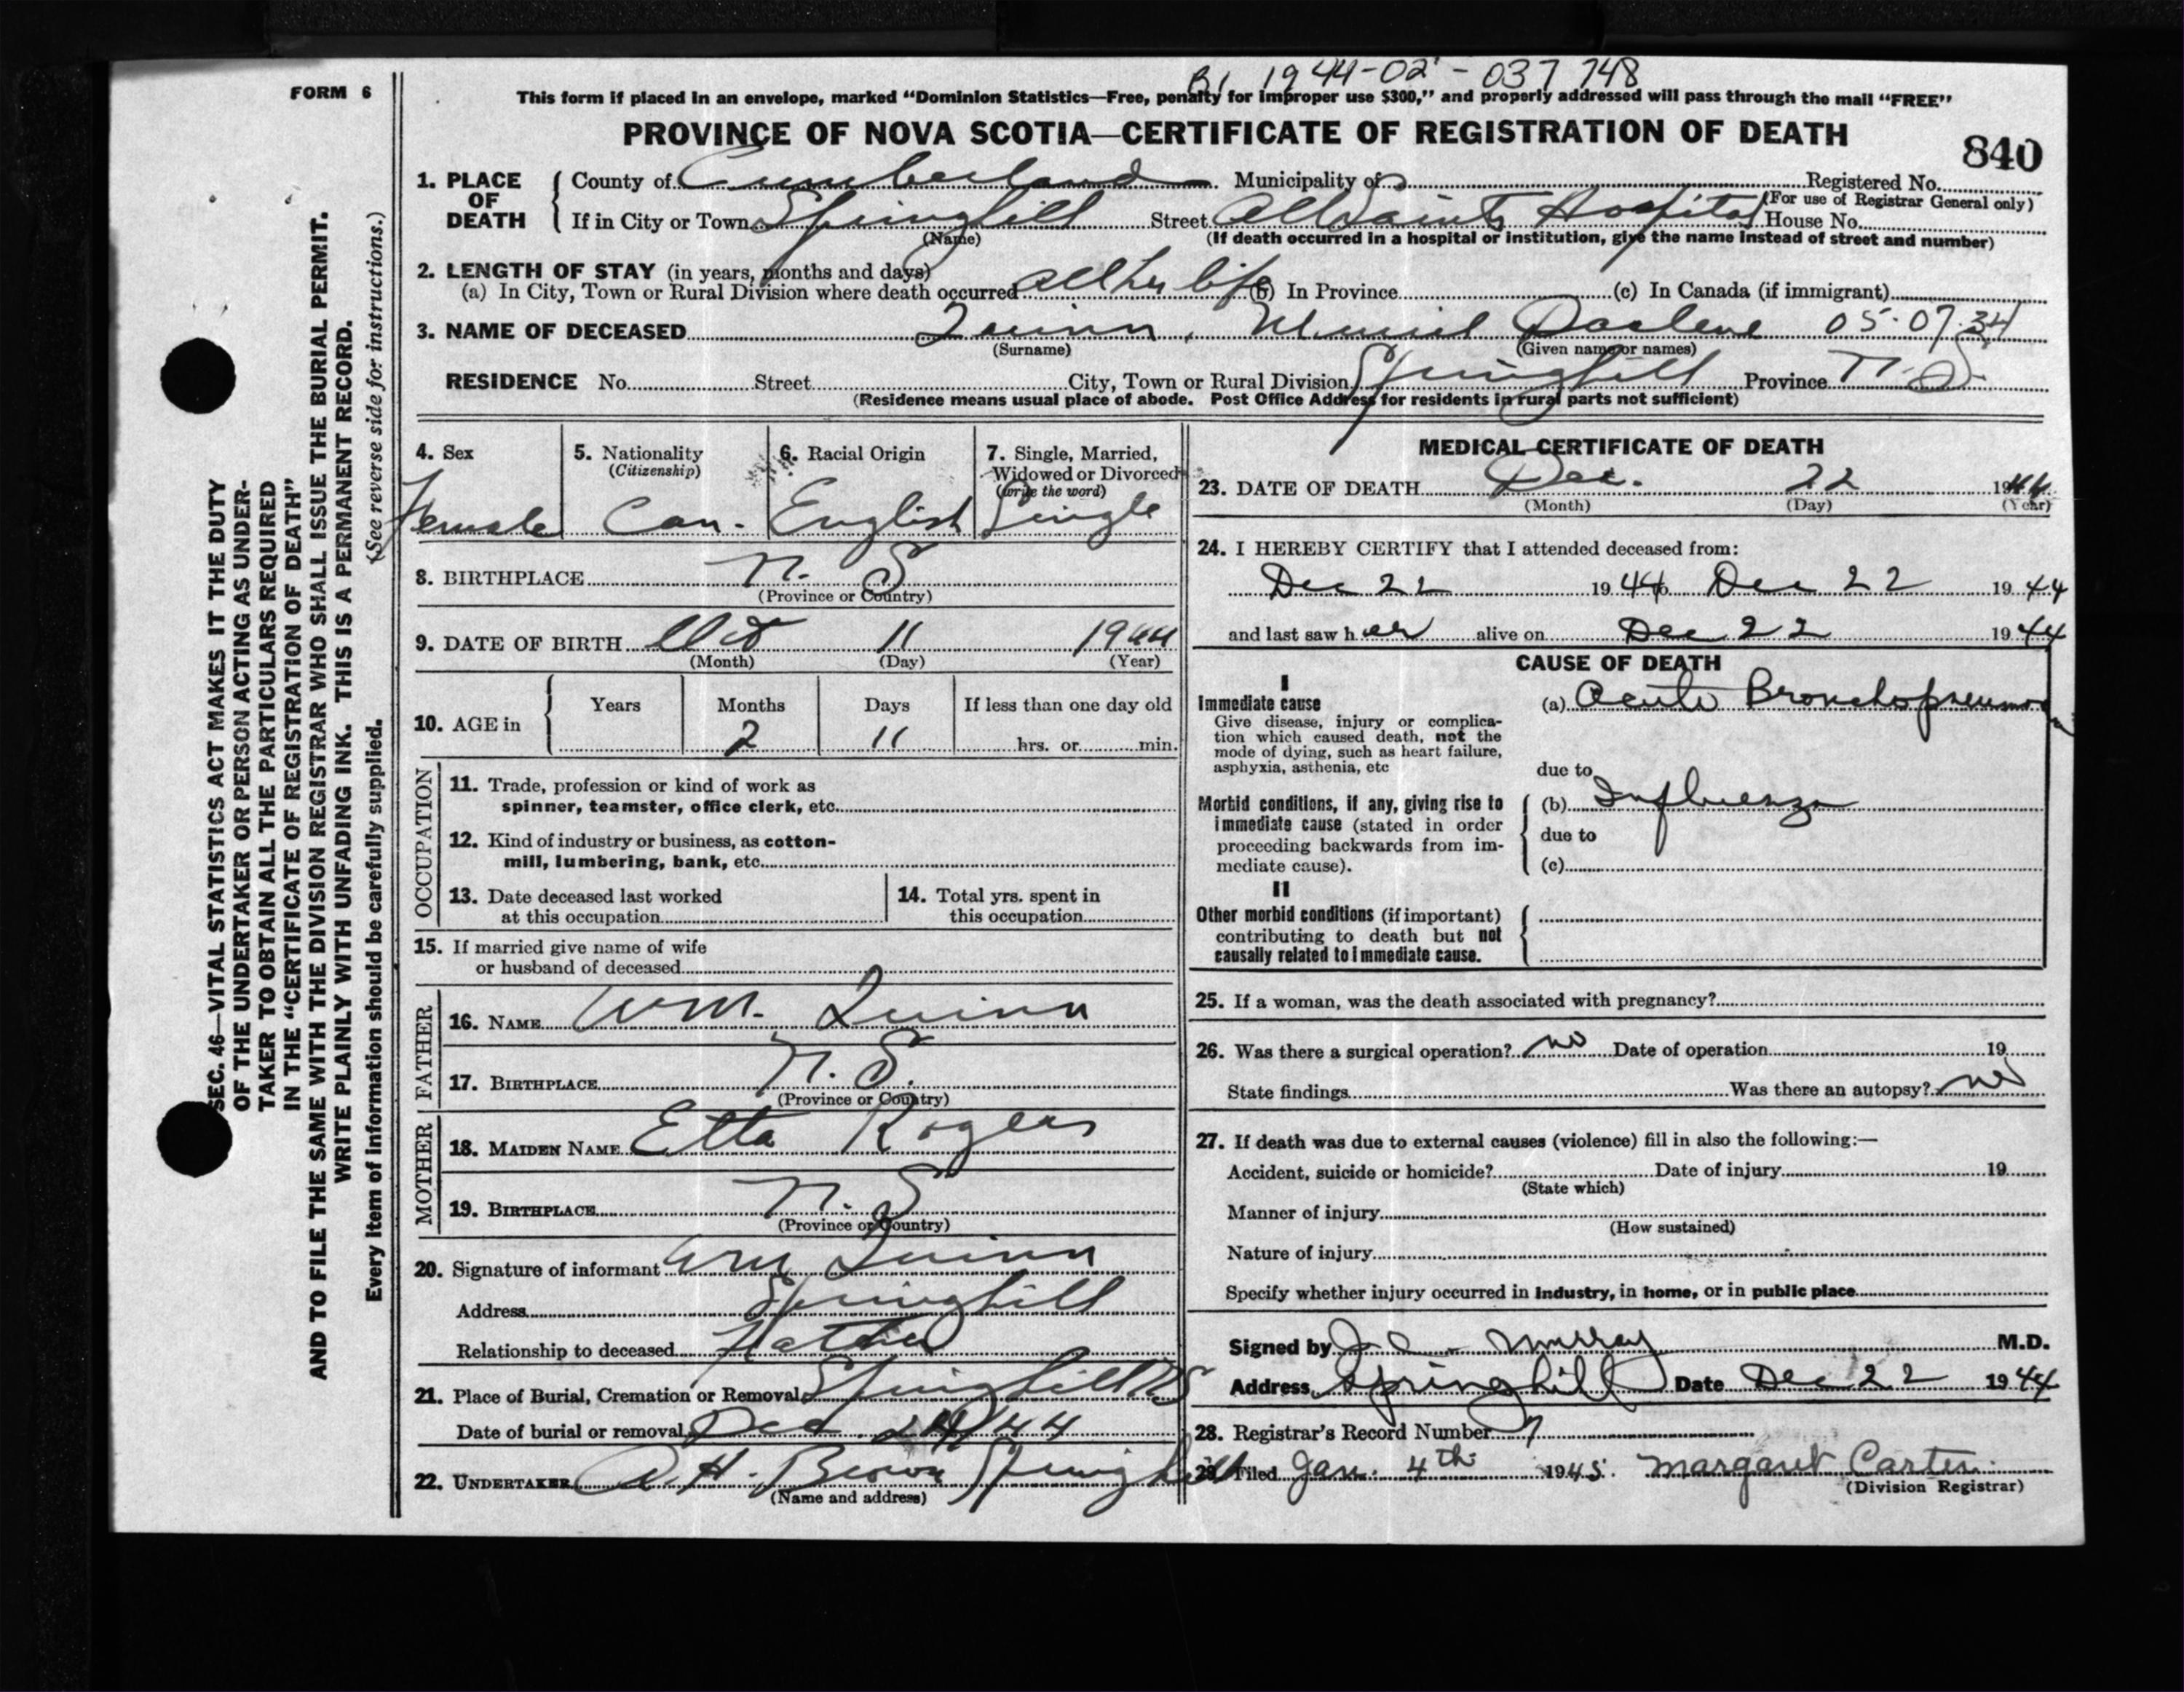 B1 1944-02-037748
FORM 6
This form if placed in an envelope, marked “Dominion Statistics—Free, penalty for improper use $300,” and properly addressed will pass through the mail “FREE”
PROVINCE OF NOVA SCOTIA—CERTIFICATE OF REGISTRATION OF DEATH
840
1. PLACE OF DEATH
County of Cumberland Municipality of Registered No.
(For use of Registrar General only)
If in City or Town Springhill Street All Saints Hospital House No.
(Name) (If death occurred in a hospital or institution, give the name instead of street and number)
2. LENGTH OF STAY (in years, months and days)
(a) In City, Town or Rural Division where death occurred all her life (b) In Province (c) In Canada (if immigrant)
3. NAME OF DECEASED Quinn, Muriel Darlene 05-07-34
(Surname) (Given name or names)
RESIDENCE No. Street City, Town or Rural Division Springhill Province N.S.
(Residence means usual place of abode. Post Office Address for residents in rural parts not sufficient)
4. Sex
Female
5. Nationality
(Citizenship)
Can.
6. Racial Origin
English
7. Single, Married,
Widowed or Divorced
(write the word)
Single
8. BIRTHPLACE N. S
(Province or Country)
9. DATE OF BIRTH Oct 11 1944
(Month) (Day) (Year)
10. AGE in
Years Months Days If less than one day old
2 11 hrs. or min.
OCCUPATION
11. Trade, profession or kind of work as
spinner, teamster, office clerk, etc.
12. Kind of industry or business, as cotton-
mill, lumbering, bank, etc.
13. Date deceased last worked
at this occupation
14. Total yrs. spent in
this occupation
15. If married give name of wife
or husband of deceased
FATHER
16. NAME Wm. Quinn
17. BIRTHPLACE N. S.
(Province or Country)
MOTHER
18. MAIDEN NAME Etta Rogers
19. BIRTHPLACE N. S
(Province or Country)
20. Signature of informant Wm Quinn
Address Springhill
Relationship to deceased Father
21. Place of Burial, Cremation or Removal Springhill NS
Date of burial or removal Dec. 24/44
22. UNDERTAKER A. H. Brown Springhill
(Name and address)
MEDICAL CERTIFICATE OF DEATH
23. DATE OF DEATH Dec. 22 1944
(Month) (Day) (Year)
24. I HEREBY CERTIFY that I attended deceased from:
Dec 22 1944 to Dec 22 1944
and last saw her alive on Dec 22 1944
CAUSE OF DEATH
I
Immediate cause
Give disease, injury or complica-
tion which caused death, not the
mode of dying, such as heart failure,
asphyxia, asthenia, etc
(a) Acute Bronchopneumonia
due to
Morbid conditions, if any, giving rise to
immediate cause (stated in order
proceeding backwards from im-
mediate cause).
(b) Influenza
due to
(c)
II
Other morbid conditions (if important)
contributing to death but not
causally related to immediate cause.
25. If a woman, was the death associated with pregnancy?
26. Was there a surgical operation? no Date of operation 19
State findings Was there an autopsy? no
27. If death was due to external causes (violence) fill in also the following:—
Accident, suicide or homicide? Date of injury 19
(State which)
Manner of injury
(How sustained)
Nature of injury
Specify whether injury occurred in industry, in home, or in public place
Signed by J. C. Murray M.D.
Address Springhill Date Dec 22 1944
28. Registrar's Record Number 7
29. Filed Jan. 4th 1945. Margaret Carter
(Division Registrar)
SEC. 46—VITAL STATISTICS ACT MAKES IT THE DUTY
OF THE UNDERTAKER OR PERSON ACTING AS UNDER-
TAKER TO OBTAIN ALL THE PARTICULARS REQUIRED
IN THE “CERTIFICATE OF REGISTRATION OF DEATH”
AND TO FILE THE SAME WITH THE DIVISION REGISTRAR WHO SHALL ISSUE THE BURIAL PERMIT.
WRITE PLAINLY WITH UNFADING INK. THIS IS A PERMANENT RECORD.
Every item of information should be carefully supplied. (See reverse side for instructions.)